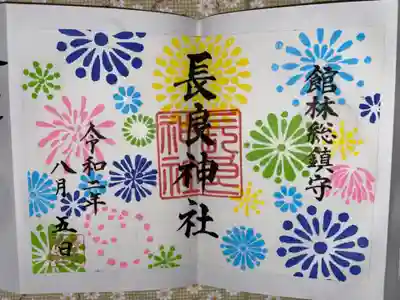 館林総鎮守
長良神社
令和二年
八月五日